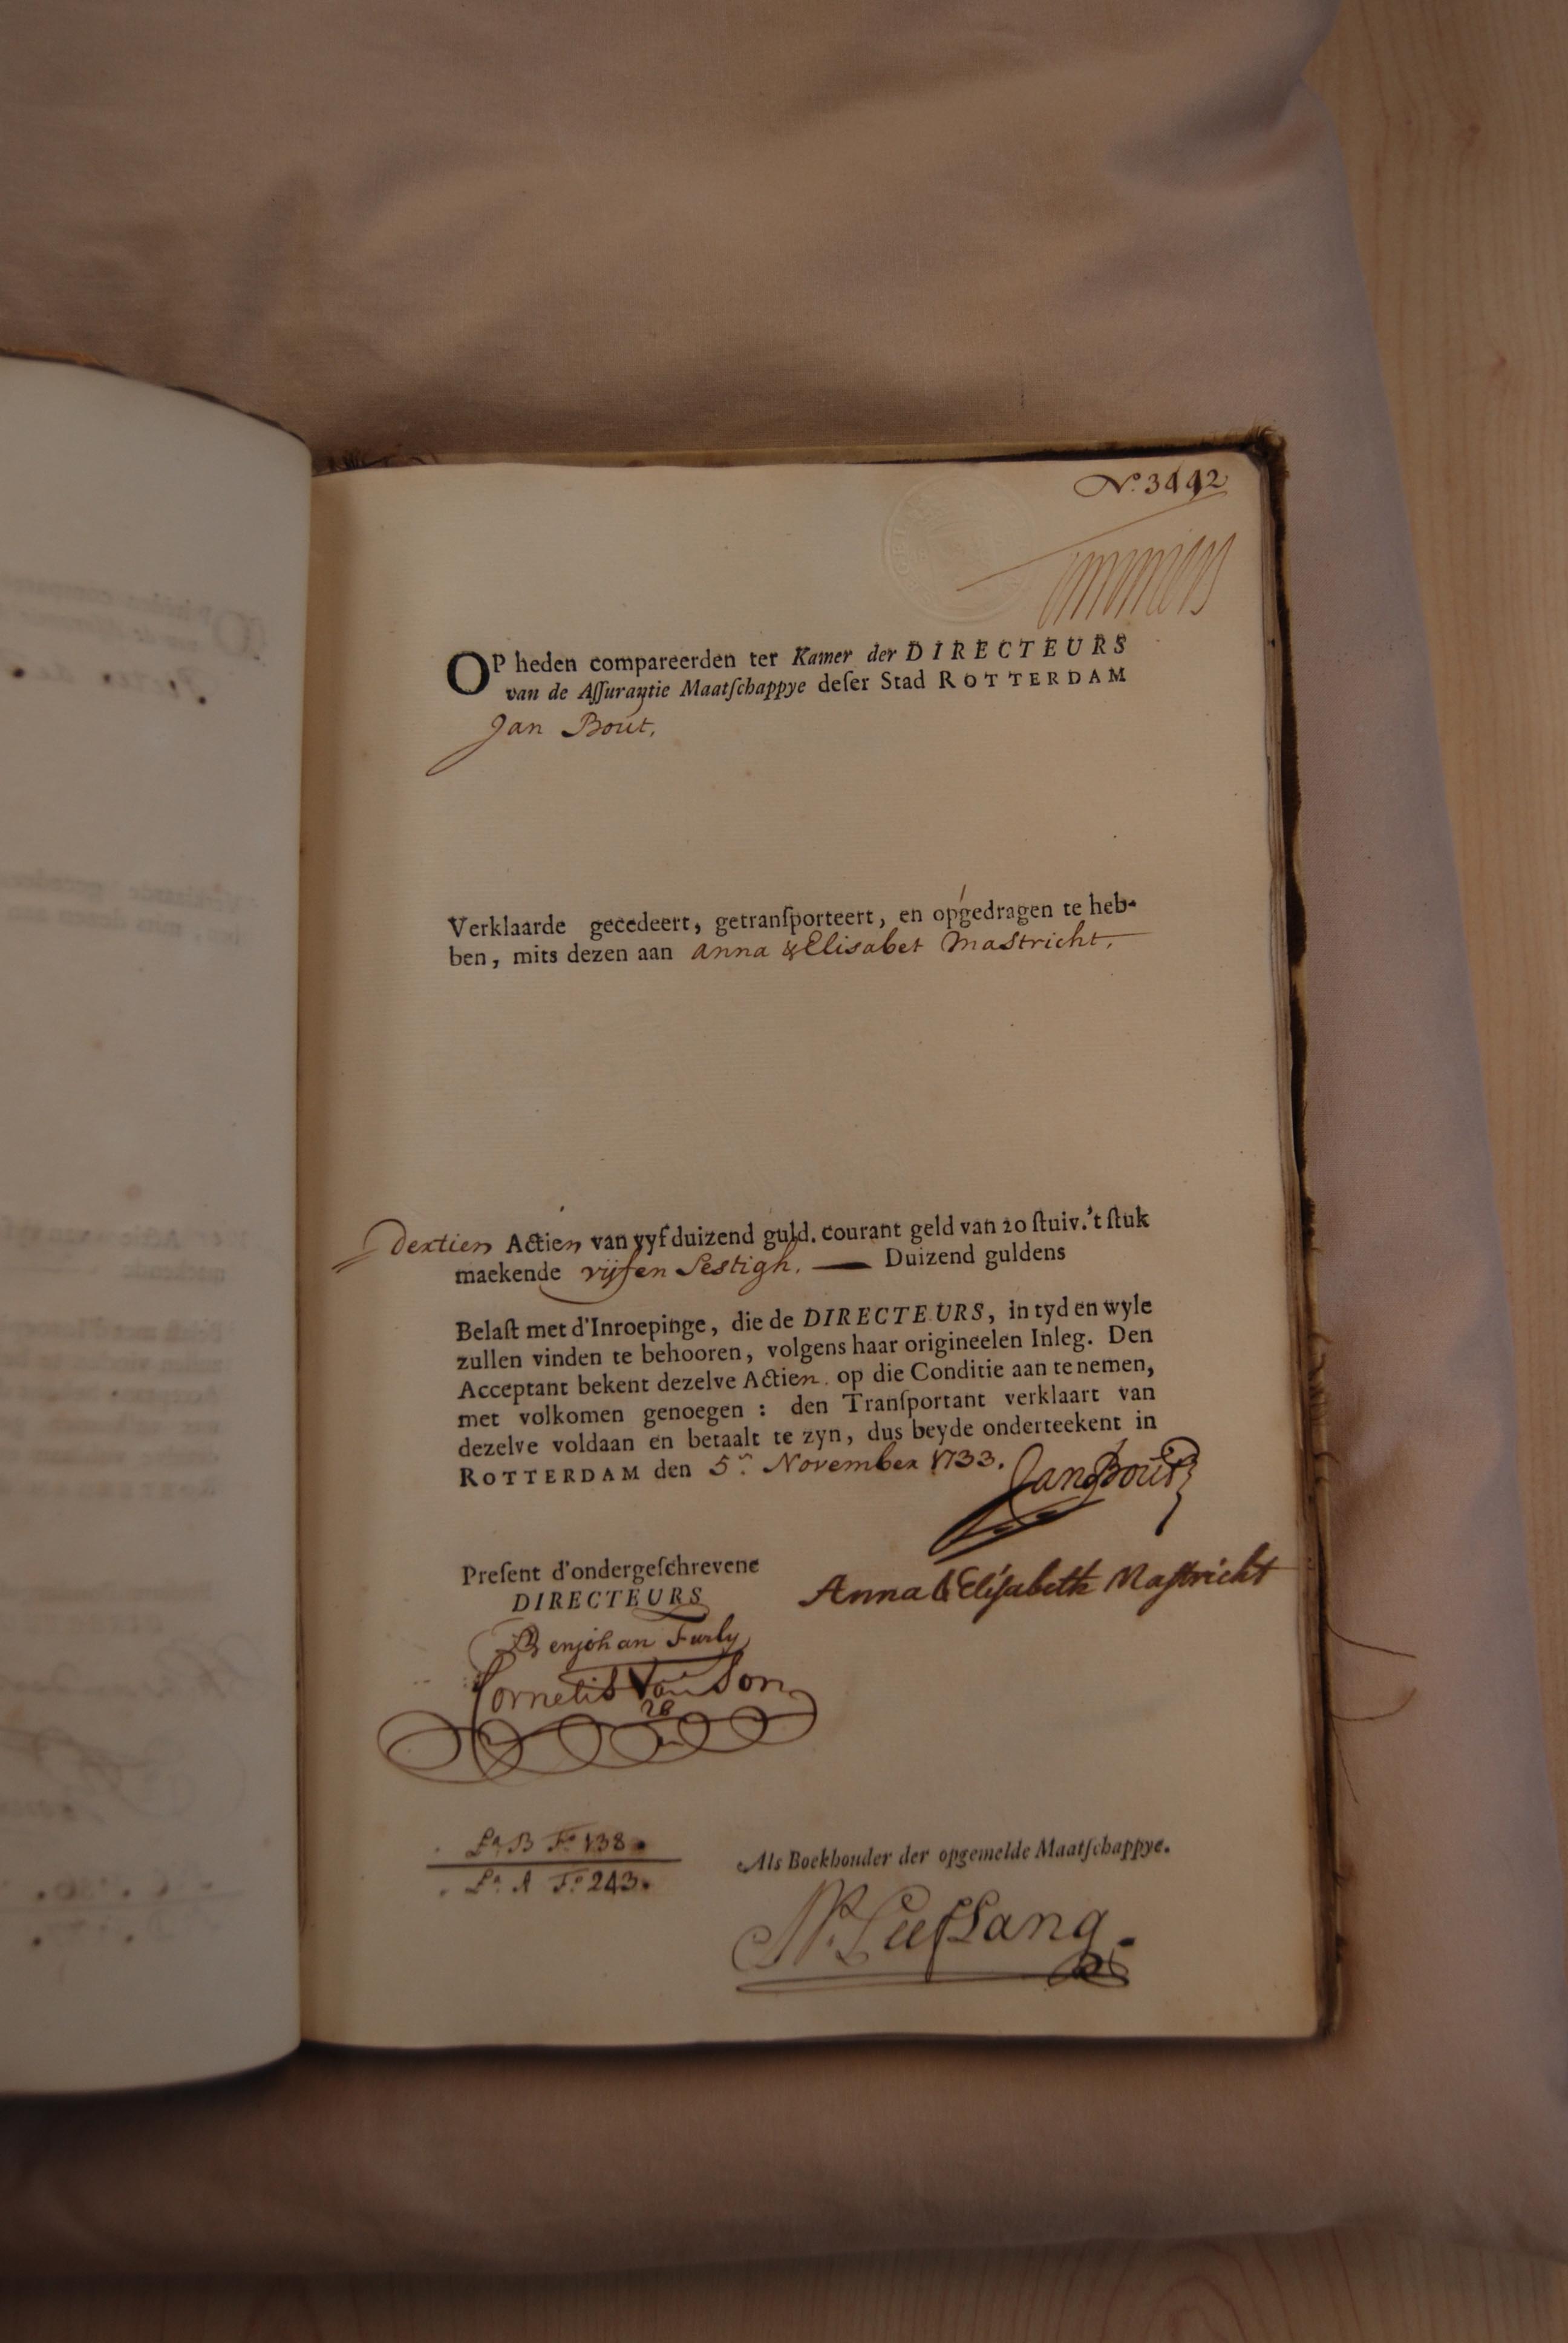 No. 3442
OP heden compareerden ter Kamer der DIRECTEURS
van de Aſſurantie Maatſchappye deſer Stad ROTTERDAM
Jan Bout,
Verklaarde gecedeert, getranſporteert, en opgedragen te heb-
ben, mits dezen aan Anna & Elisabet Mastricht,
Dertien Actien van vyf duizend guld. courant geld van 20 ſtuiv. 't ſtuk
maekende vijf en Sestigh, — Duizend guldens
Belaſt met d'Inroepinge, die de DIRECTEURS, in tyd en wyle
zullen vinden te behooren, volgens haar origineelen Inleg. Den
Acceptant bekent dezelve Actien op die Conditie aan te nemen,
met volkomen genoegen : den Tranſportant verklaart van
dezelve voldaan en betaalt te zyn, dus beyde onderteekent in
ROTTERDAM den 5n. November 1733.
Jan Bout
Preſent d'ondergeſchrevene
DIRECTEURS
Anna & Elisabeth Mastricht
Benjohan Furly
Cornelis Van Son
La B Fo 138.
La A Fo 243.
Als Boekhouder der opgemelde Maatſchappye.